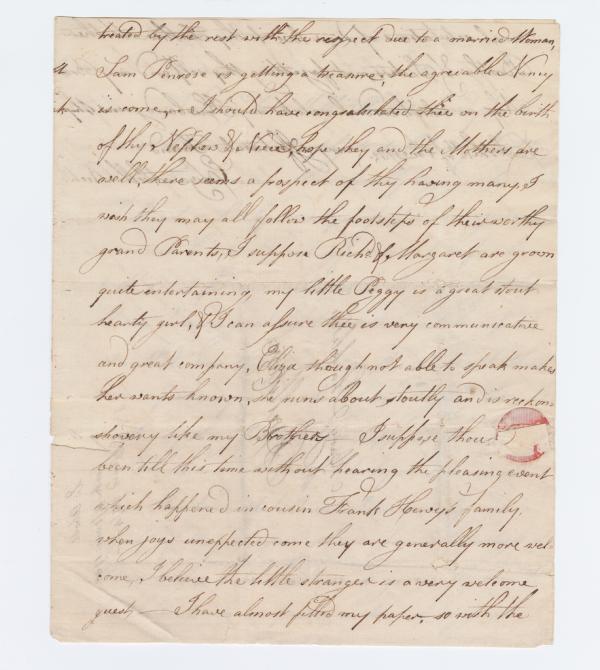 treated by the rest with the respect due to a married Woman,
Sam Penrose is getting a treasure, the agreeable Nancy
is come, — I should have congratulated thee on the birth
of thy Nephew & Niece, hope they and the Mothers are
well, there seems a prospect of thy having many, I
wish they may all follow the footsteps of their worthy
grand Parents, I suppose Richd & Margaret are grown
quite entertaining, my little Peggy is a great stout
hearty girl, & I can assure thee is very communicative
and great company, Eliza though not able to speak makes
her wants known, she runs about stoutly and is reckon
very like my Brother — I suppose thou
been till this time without hearing the pleasing event
which happened in cousin Frank Hewys family,
when joys unexpected come they are generally more wel
come, I believe the little stranger is a very welcome
guest — I have almost filled my paper, so with the